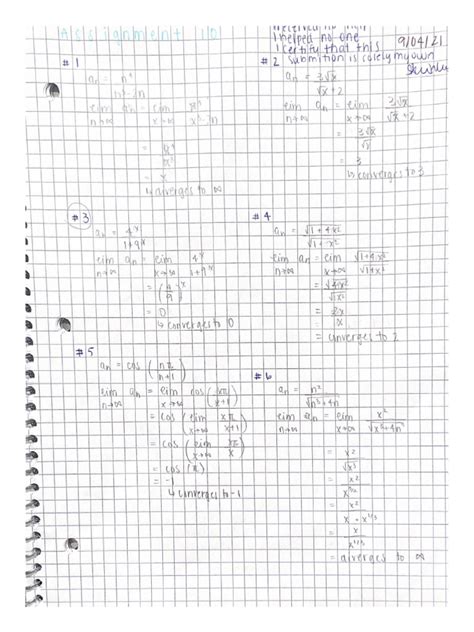 Assignment 10
received no help
I helped no one
I certify that this
submition is solely my own
9/04/21
#1
aₙ = n⁴
lim aₙ = lim
n→∞ x→∞
= x
↳ diverges to ∞
#2
aₙ = 3√x
√x + 2
lim aₙ = lim 3√x
n→∞ x→∞ √x + 2
= 3√x
√x
= 3
↳ converges to 3
#3
aₙ = 4ˣ
1+9ˣ
lim aₙ = lim 4ˣ
n→∞ x→∞ 1+9ˣ
= (4/9)ˣ
= 0
↳ converges to 0
#4
aₙ = √1+4x²
√1+x²
lim aₙ = lim √1+4x²
n→∞ x→∞ √1+x²
= √4x²
√x²
= 2x
x
= converges to 2
#5
aₙ = cos (nπ/n+1)
lim aₙ = lim cos (xπ/x+1)
n→∞ x→∞
= cos (lim xπ/x+1)
x→∞
= cos (lim xπ/x)
x→∞
= cos (π)
= -1
↳ converges to -1
#6
aₙ = n²
√n³+4n
lim aₙ = lim x²
n→∞ x→∞ √x³+4n
= x²
√x³
= x²
x^3/2
= x²
= x
= diverges to ∞